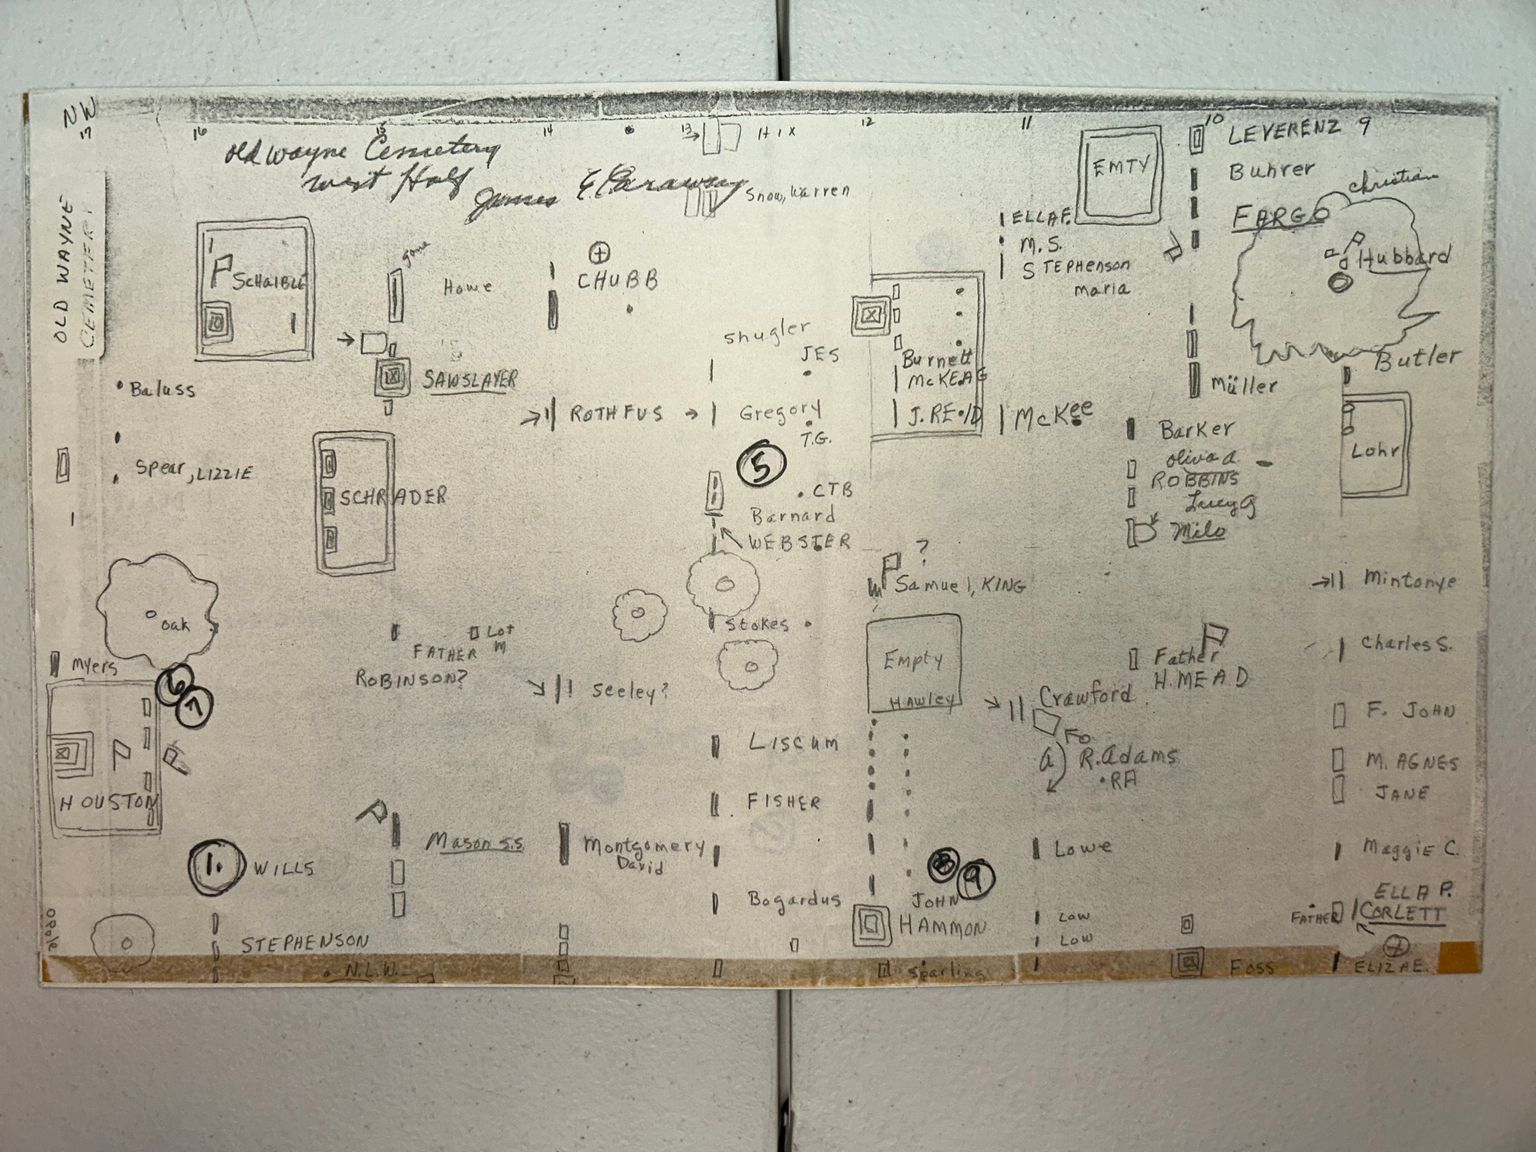 NW
17
16
15
14
13
H 1 X
12
11
10
LEVERENZ 9
old wayne Cemetery
west Half
James E Caraway
OLD WAYNE
CEMETERY
Snow, Warren
EMTY
Buhrer
christian
FARGO
Hubbard
ELLA F.
M. S.
STEPHENSON
maria
SCHAIBLE
gone
Howe
CHUBB
Shugler
JES
Burnett
McKEAG
Butler
Müller
Baluss
SAWSLAYER
ROTHFUS
Gregory
T.G.
J. REID
McKee
Barker
Oliva A.
ROBBINS
Lucy G
Milo
Lohr
5
Spear, LIZZIE
SCHRADER
CTB
Barnard
WEBSTER
?
Samuel, KING
Mintonye
oak
Stokes
Lot
M
FATHER
ROBINSON?
Seeley?
Empty
Hawley
Father
H. MEAD
Charles S.
Myers
6
7
Crawford
Fo
R. Adams
RA
F. JOHN
M. AGNES
JANE
HOUSTON
LISCUM
FISHER
Mason S.S.
Montgomery
David
Lowe
Maggie C.
1.
WILLS
8
9
Bogardus
JOHN
HAMMON
ELLA P.
FATHER
CORLETT
Low
Low
STEPHENSON
N.L.W.
Sparling
Foss
ELIZAE.